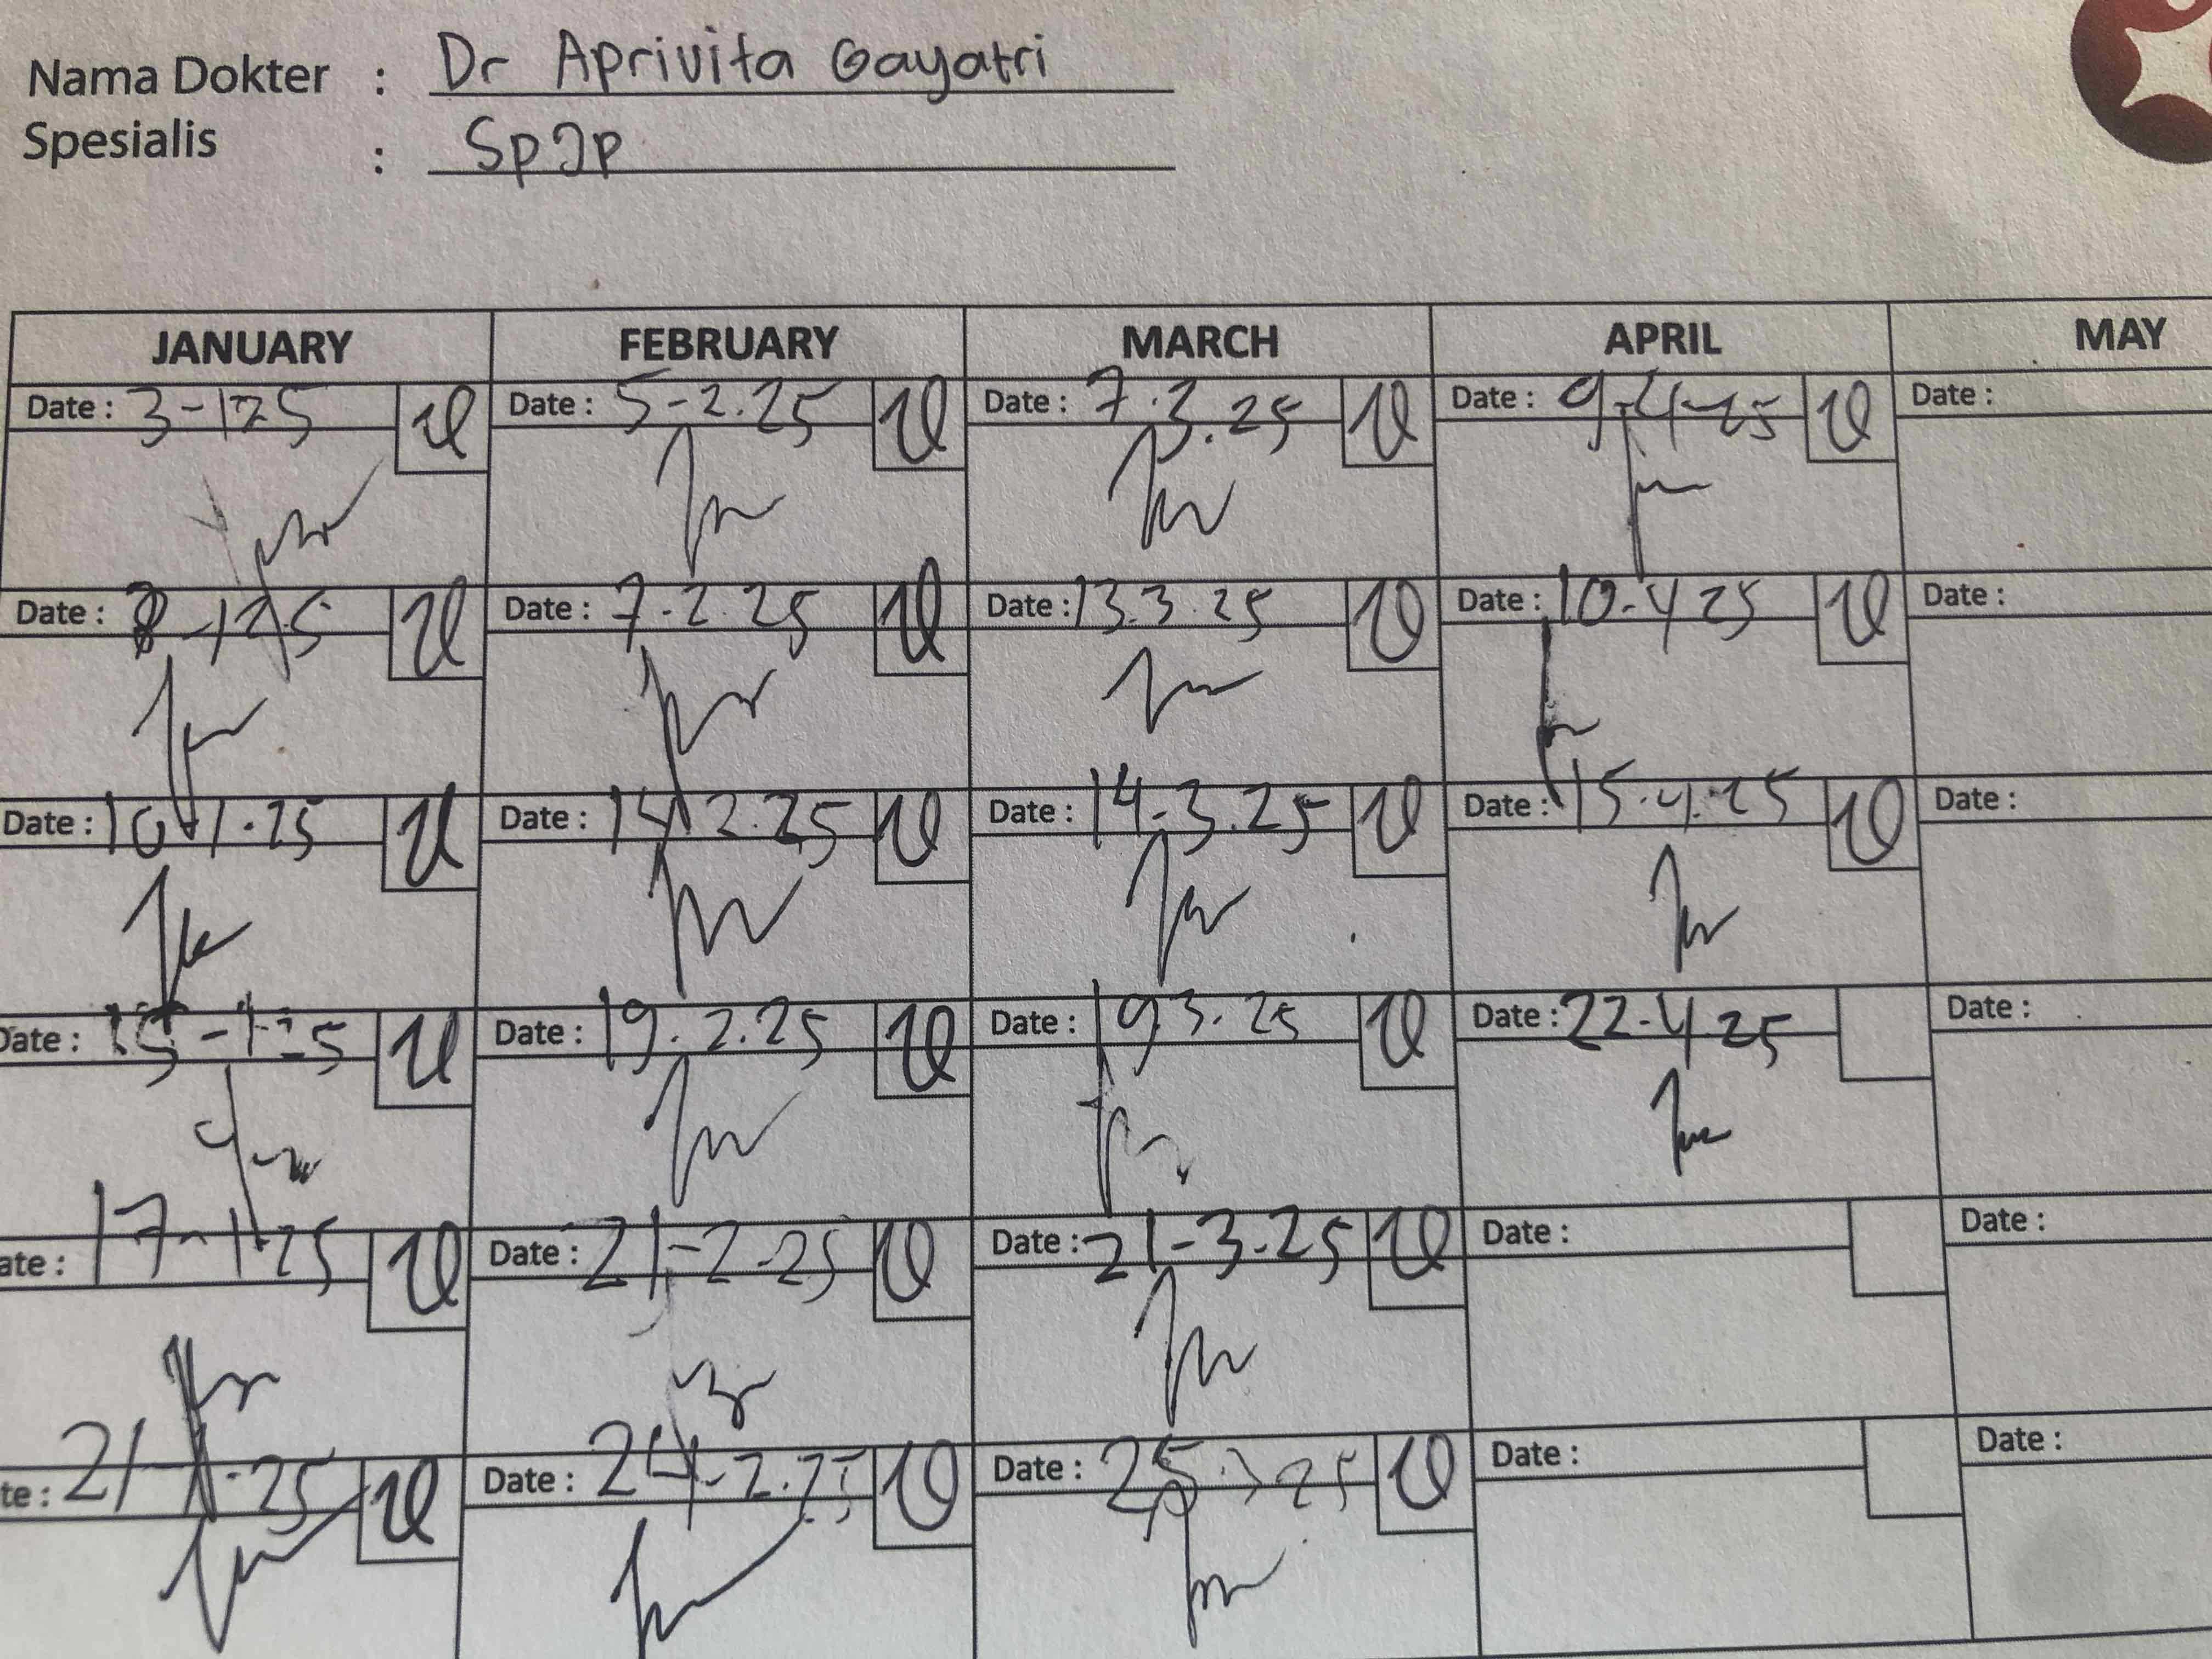 Nama Dokter : Dr Aprivita Gayatri
Spesialis : SpJp
JANUARY FEBRUARY MARCH APRIL MAY
Date : 3-125 Date : 5-2.25 Date : 7.3.25 Date : 9-4-25 Date :
Date : 8-125 Date : 7.2.25 Date : 13.3.25 Date : 10-4 25 Date :
Date : 10-1.25 Date : 14 2.25 Date : 14-3.25 Date : 15.4.25 Date :
Date : 15-1-25 Date : 19.2.25 Date : 19 3.25 Date : 22-4 25 Date :
ate : 17-1-25 Date : 21-2-25 Date : 21-3-25 Date : Date :
te : 21-1-25 Date : 24-2.25 Date : 25 Date : Date :